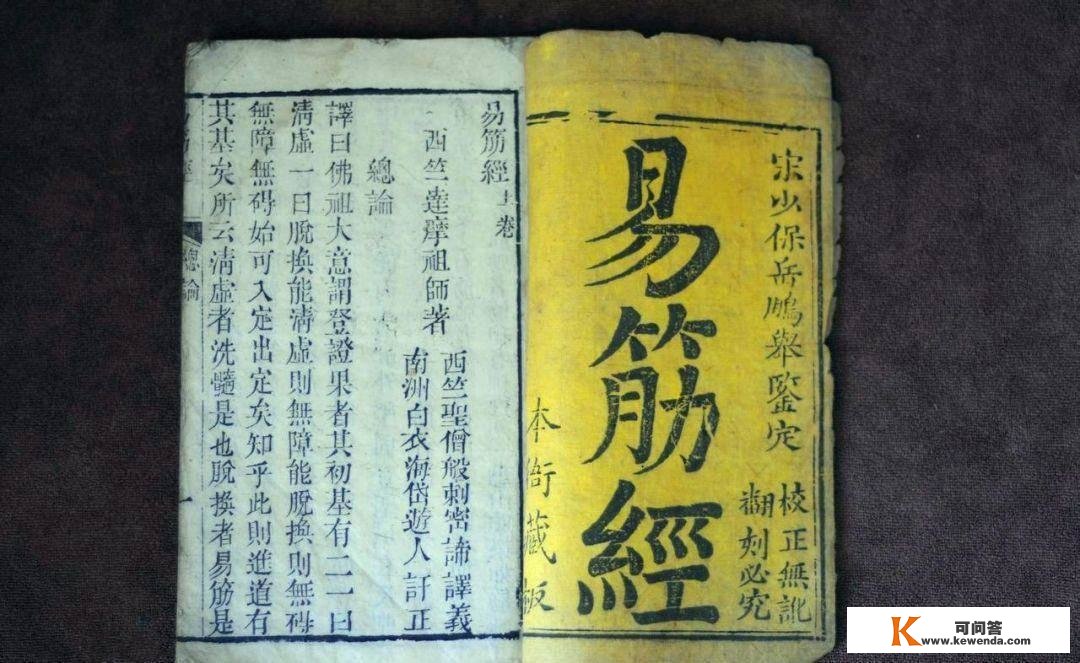 宋少保岳鵬舉鑒定
校正無訛
翻刻必究
易筋經
本衙藏板
易筋經上卷
西竺達摩祖師著
西竺聖僧般刺密諦譯義
南洲白衣海岱遊人訂正
總論
譯曰佛祖大意謂登證果者其初基有二一曰
清虛一曰脫換能清虛則無障能脫換則無碍
無障無碍始可入定出定矣知乎此則進道有
其基矣所云清虛者洗髓是也脫換者易筋是
總論
一
K 可问答
www.kewenda.com